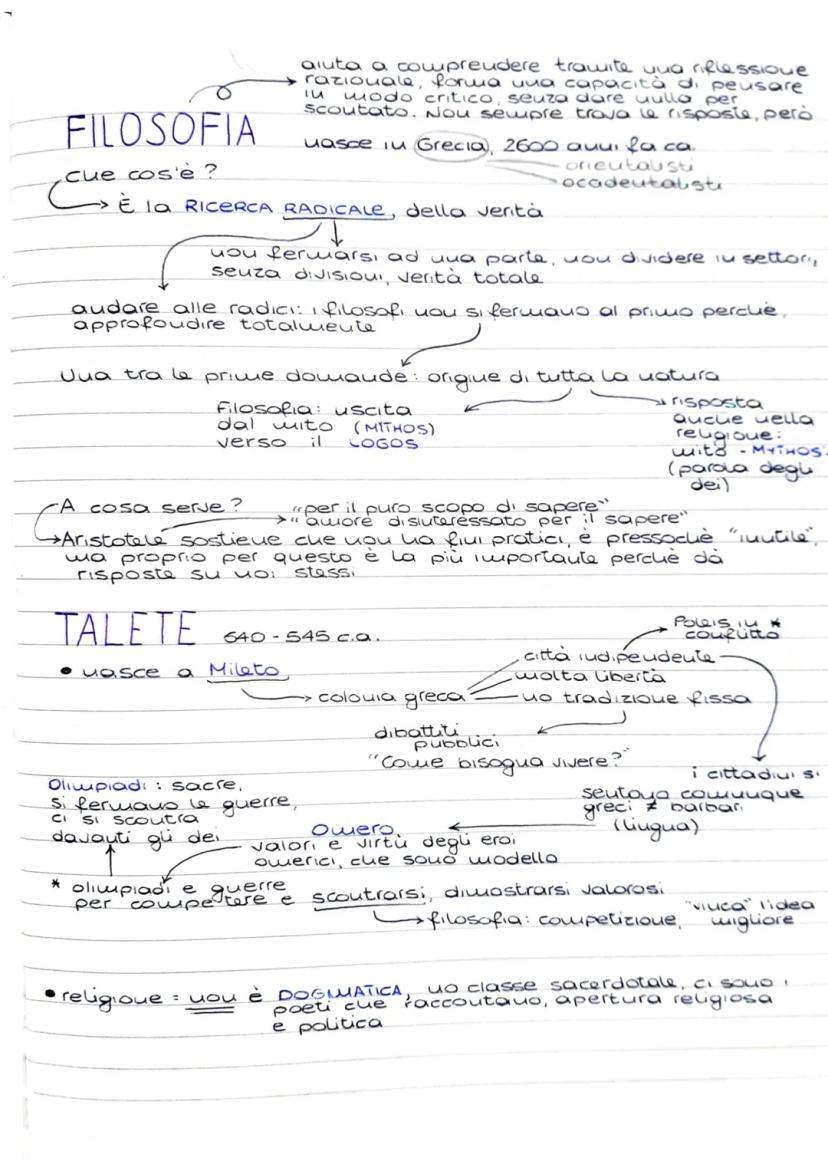 aiuta a comprendere tramite una riflessione
razionale, forma una capacità di pensare
in modo critico, senza dare nulla per
scontato. Non sempre trova le risposte, però
FILOSOFIA
nasce in Grecia, 2600 anni fa ca.
orientalisti
occadentalisti
che cos'è ?
È la RICERCA RADICALE, della verità
non fermarsi ad una parte, non dividere in settori,
senza divisioni, verità totale
andare alle radici: i filosofi non si fermano al primo perchè,
approfondire totalmente
Una tra le prime domande: origine di tutta la natura
Filosofia: uscita
dal mito (MITHOS)
verso il LOGOS
risposta
anche nella
religione:
mito - MYTHOS.
(parola degli
dei)
A cosa serve?
"per il puro scopo di sapere"
"amore disinteressato per il sapere"
Aristotele sostiene che non ha fini pratici, è pressochè "inutile",
ma proprio per questo è la più importante perchè dà
risposte su noi stessi
TALETE 640-545 c.a.
Poleis in *
conflitto
• nasce a Mileto
città indipendente
molta libertà
colonia greca
no tradizione fissa
dibattiti
pubblici
"Come bisogna vivere?"
i cittadini si
sentono comunque
greci ≠ barbari
(lingua)
Olimpiadi: sacre,
si fermano le guerre,
ci si scontra
davanti gli dei
Omero,
valori e virtù degli eroi
omerici, che sono modello
* olimpiadi e guerre
per competere e scontrarsi, dimostrarsi valorosi
filosofia: competizione, "vinca" l'idea
migliore
• religione = non è DOGMATICA, no classe sacerdotale, ci sono i
poeti che raccontano, apertura religiosa
e politica